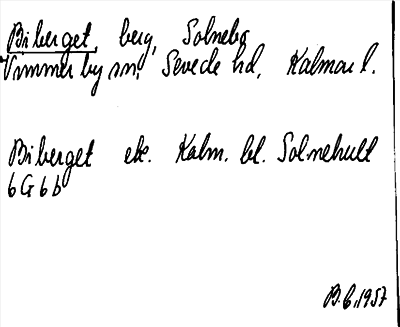 Biberget, berg, Solnebo
Vimmerby sn, Sevede hd, Kalmar l.
Biberget ek. Kalm. bl. Solnehult
6G6b
B.G. 1957